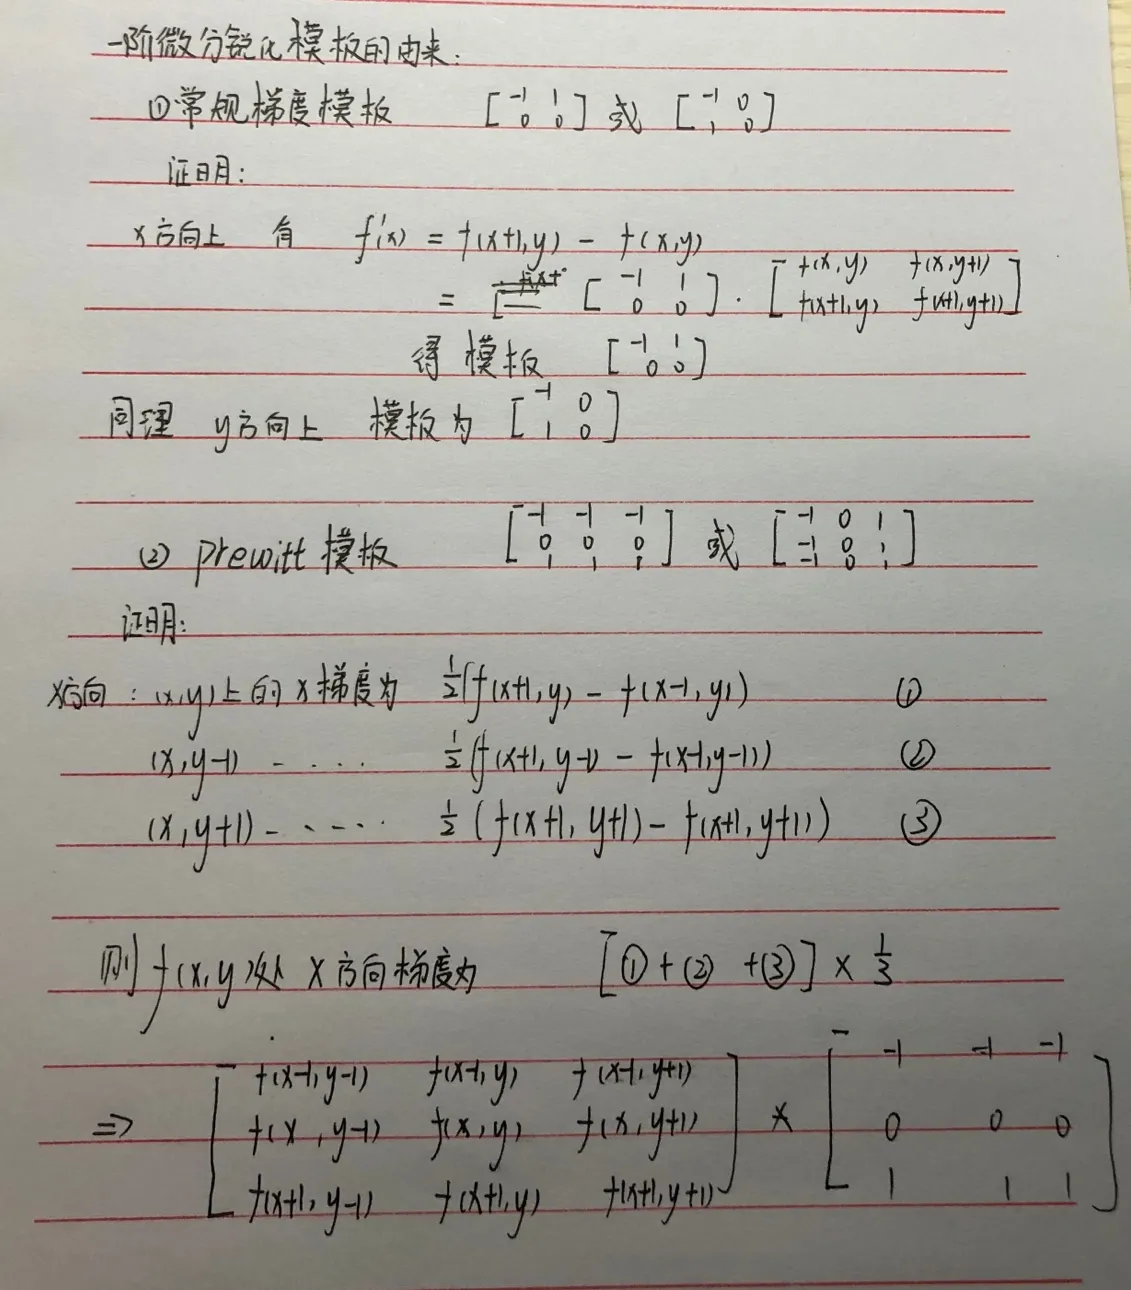 一阶微分锐化模板的由来:
①常规梯度模板 [-1 1 0 0] 或 [-1 0 1 0]
证明:
x方向上 有 f'(x) = f(x+1,y) - f(x,y)
= [-1 1 0 0] · [f(x,y) f(x,y+1) f(x+1,y) f(x+1,y+1)]
得 模板 [-1 1 0 0]
同理 y方向上 模板为 [-1 0 1 0]
(2) prewitt模板 [-1 -1 -1 0 0 0 1 1 1] 或 [-1 0 1 -1 0 1 -1 0 1]
证明:
x方向: (x,y)上的x梯度为 1/2(f(x+1,y) - f(x-1,y)) ①
(x,y-1) - .... 1/2(f(x+1,y-1) - f(x-1,y-1)) ②
(x,y+1) - ..... 1/2(f(x+1,y+1) - f(x+1,y+1)) ③
则 f(x,y)处 x方向梯度为 [①+②+③] × 1/3
⇒ [f(x-1,y-1) f(x-1,y) f(x-1,y+1)
f(x,y-1) f(x,y) f(x,y+1)
f(x+1,y-1) f(x+1,y) f(x+1,y+1)] × [-1 -1 -1
0 0 0
1 1 1]